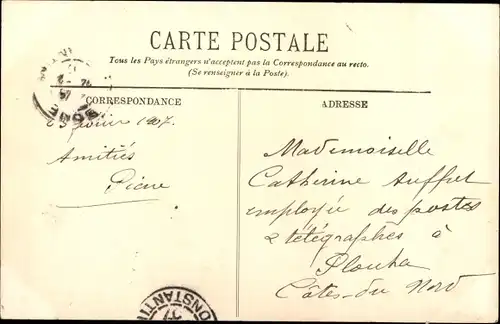 CARTE POSTALE
Tous les Pays étrangers n'acceptent pas la Correspondance au recto.
(Se renseigner à la Poste).
CORRESPONDANCE
ADRESSE
février 1907.
Amitiés
Mademoiselle
Catherine Auffret
employée des postes
& télégraphes à
Plouha
Côtes-du Nord
BONE
CONSTANTIN